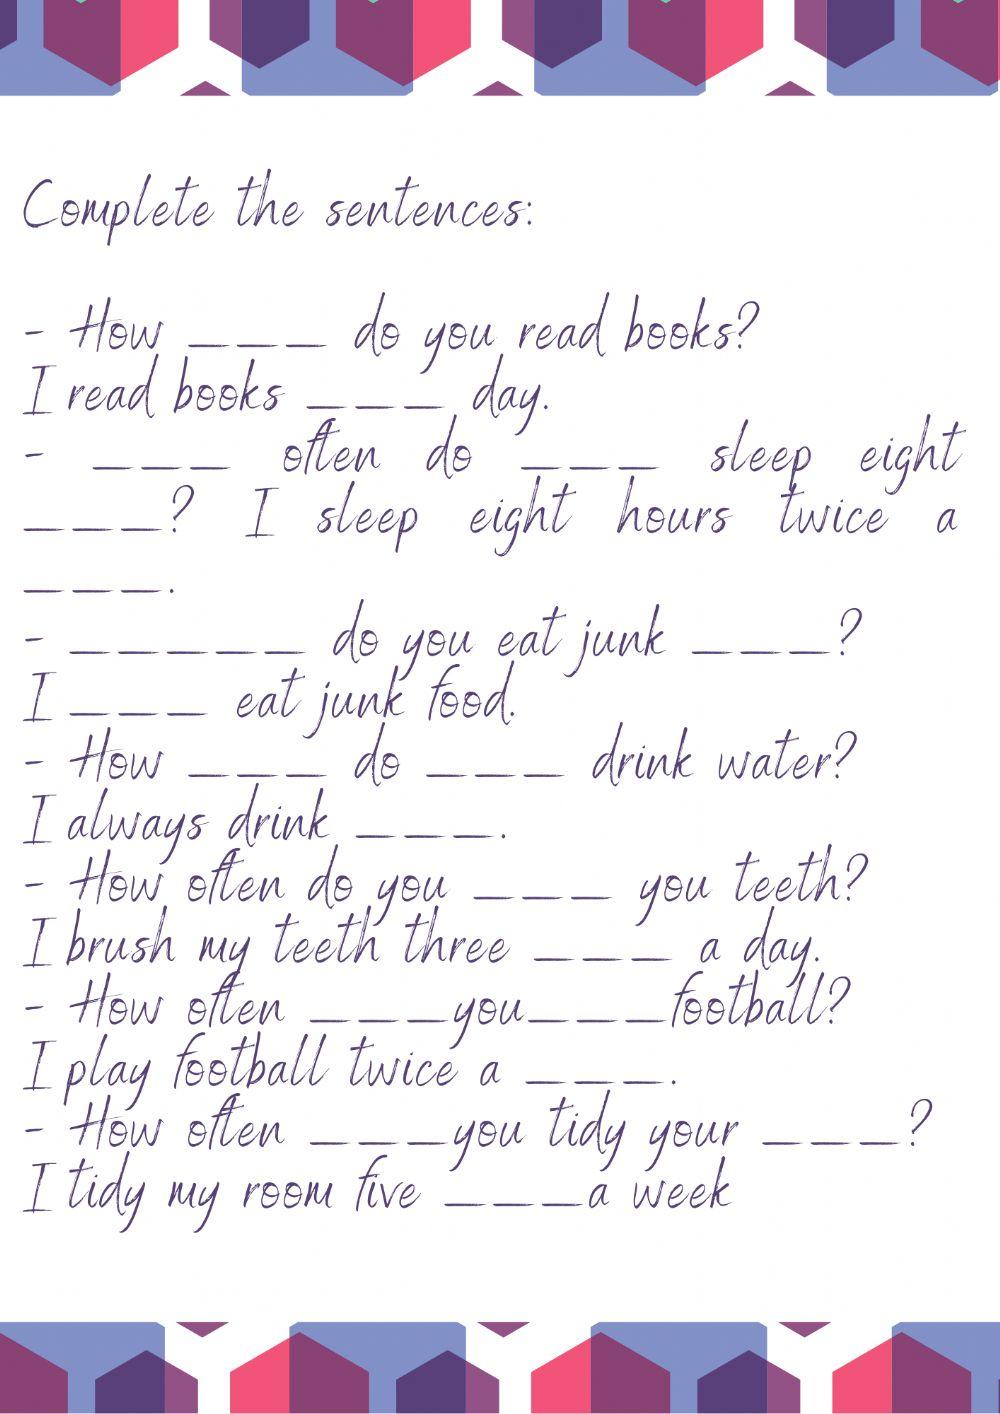 Complete the sentences:
- How ___ do you read books?
I read books ___ day.
- ___ often do ___ sleep eight
___? I sleep eight hours twice a
___.
- _____ do you eat junk ___?
I ___ eat junk food.
- How ___ do ___ drink water?
I always drink ___.
- How often do you ___ you teeth?
I brush my teeth three ___ a day.
- How often ___you___football?
I play football twice a ___.
- How often ___you tidy your ___?
I tidy my room five ___a week